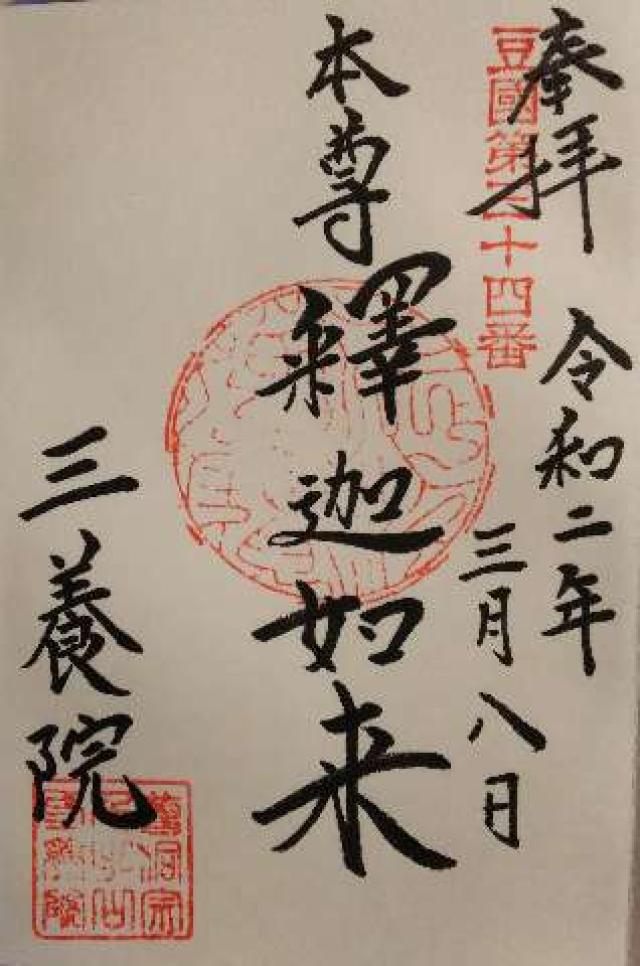 奉拝
豆國第三十四番
令和二年
三月八日
本尊
釋迦如来
三養院
曹洞宗